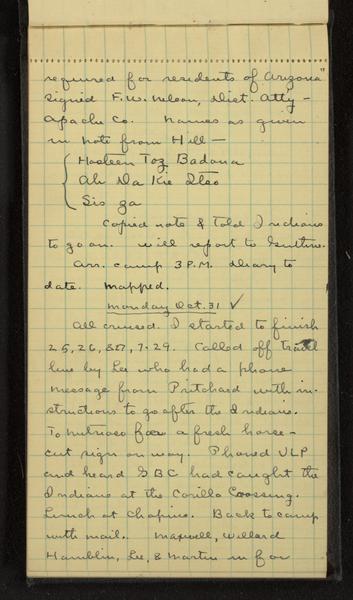 required for residents of Arizona"
signed F.W. Nelson, Dist. Atty –
Apache Co. Names as given
in note from Hill –
Hosteen Toz Badana
Ah Da Kie Etso
Sis za
Copied note & told Indians
to go on. Will report to
Arr. camp 3 P.M. Diary to
date. Mapped.
Monday Oct. 31 ✓
All cruised. I started to finish
25, 26, & 29. Called off
line by Lee who had a phone
message from Pritchard with in-
structions to go after the Indians.
To Nutrioso for a fresh horse –
cut sign on way. Phoned VLP
and heard GBC had caught the
Indians at the Corillo Crossing.
Lunch at Chapins. Back to camp
with mail. Maxwell, Willard
Hamblin, Lee, & Martin in for